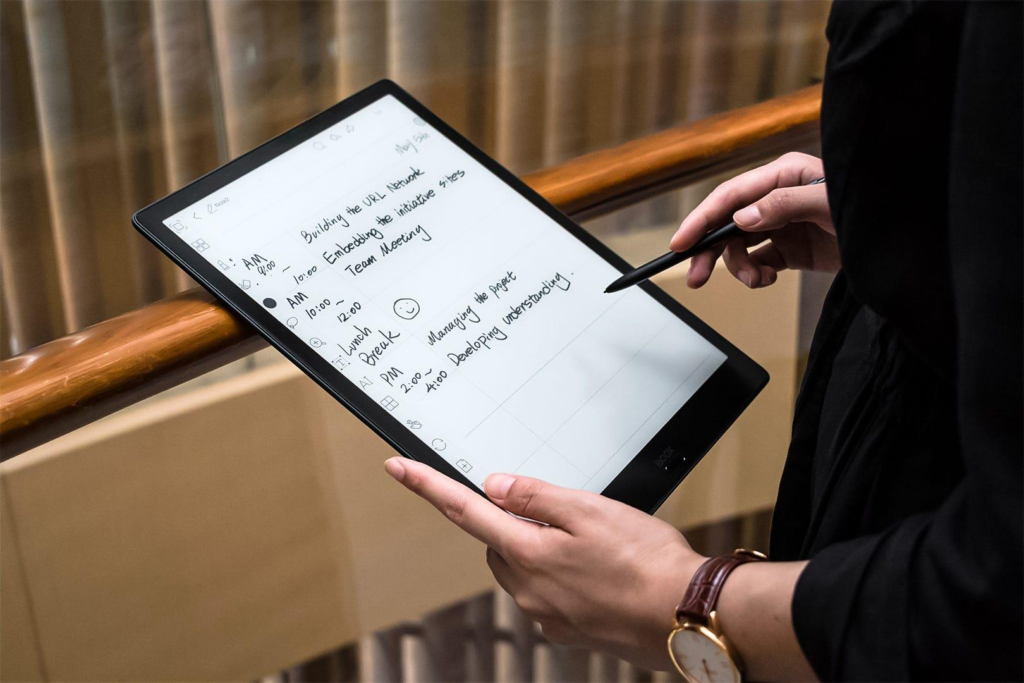 Building the URL Network
AM
Embedding the initiative sites
9:00 ~
10:00
Team Meeting
AM
10:00 ~
12:00
Lunch
Break
PM
Managing the project
2:00 ~
4:00
Developing understanding.
BOOX